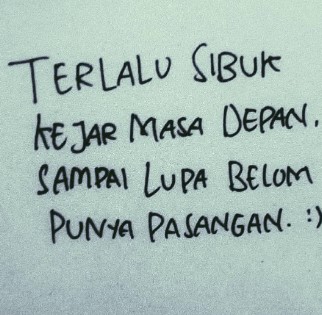 TERLALU SIBUK
KEJAR MASA DEPAN.
SAMPAI LUPA BELOM
PUNYA PASANGAN. :)